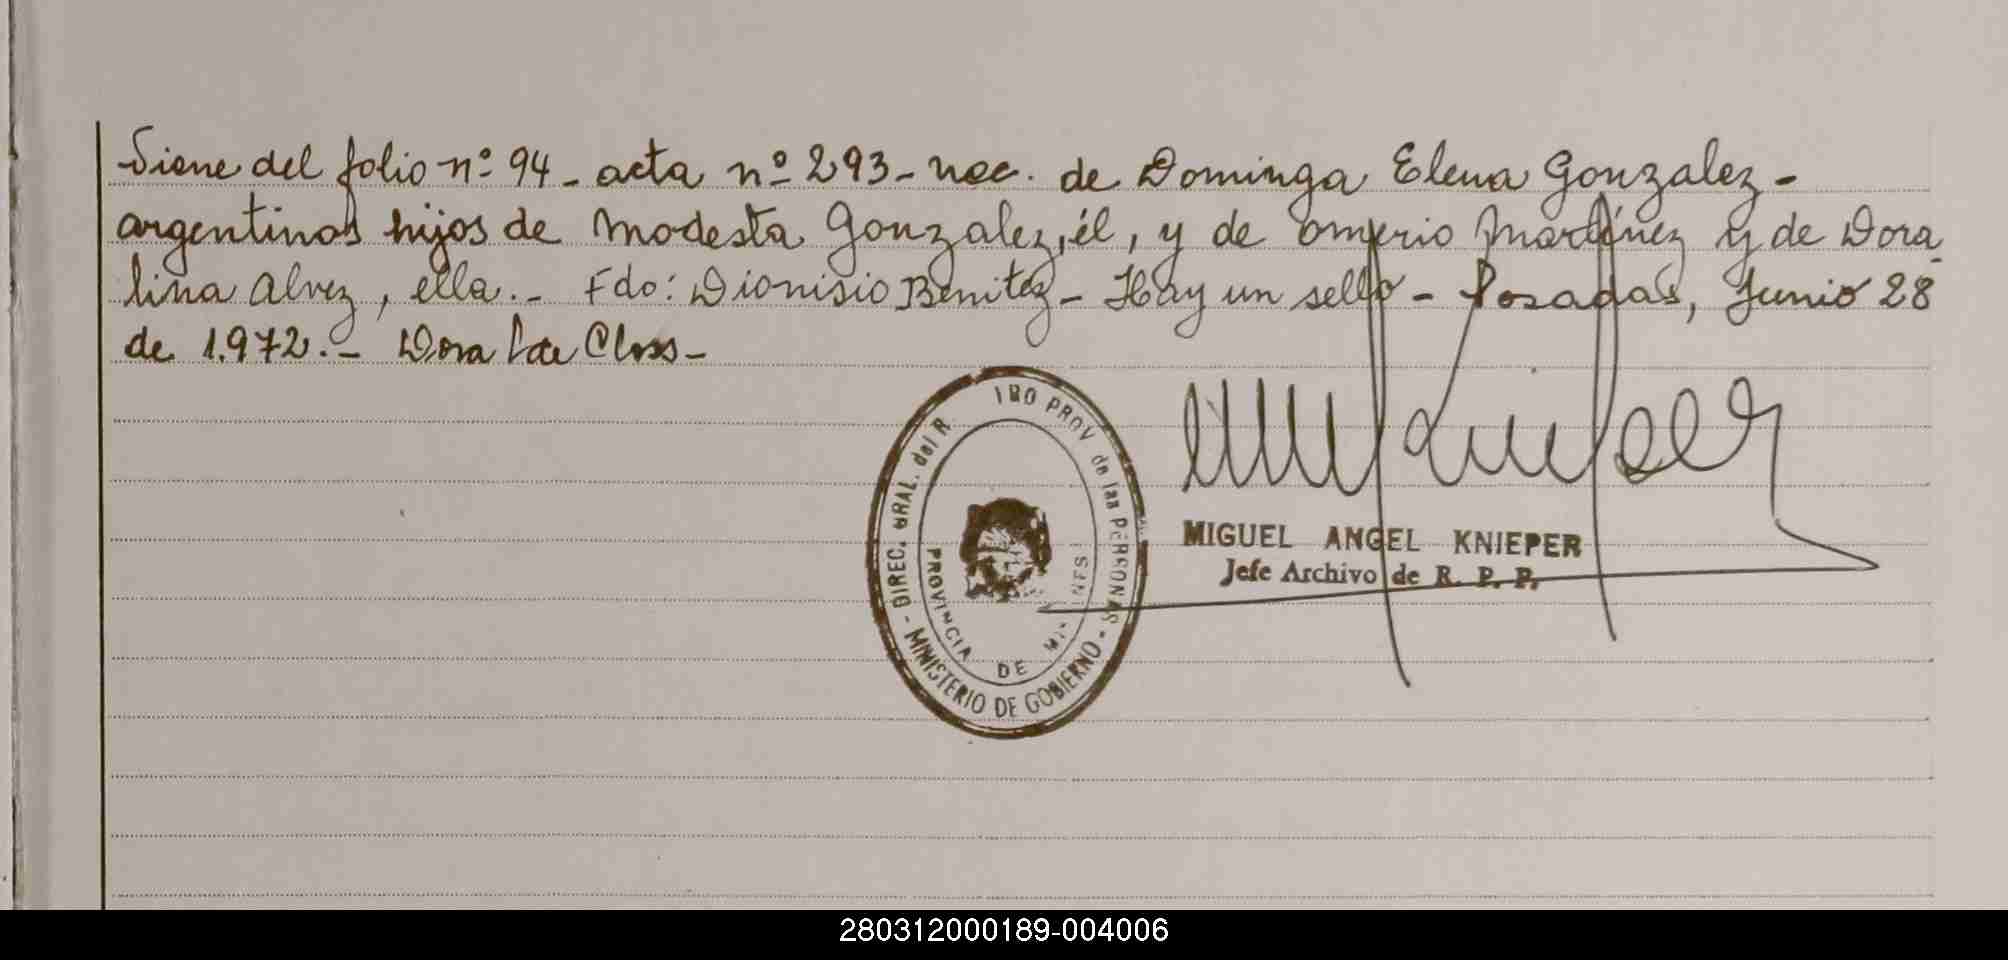 Viene del folio nº 94 - acta nº 293 - nac. de Dominga Elena Gonzalez -
argentinos hijos de Modesta Gonzalez, él, y de Omerio Martínez y de Dora
lina Alvez, ella. - Fdo: Dionisio Benitez - Hay un sello - Posadas, Junio 28
de 1.972. - Dora de Closs -
DIREC. GRAL. del R IRO PROV de las PERSONAS
- MINISTERIO DE GOBIERNO -
PROVINCIA DE MI NES
MIGUEL ANGEL KNIEPER
Jefe Archivo de R. P. P.
280312000189-004006